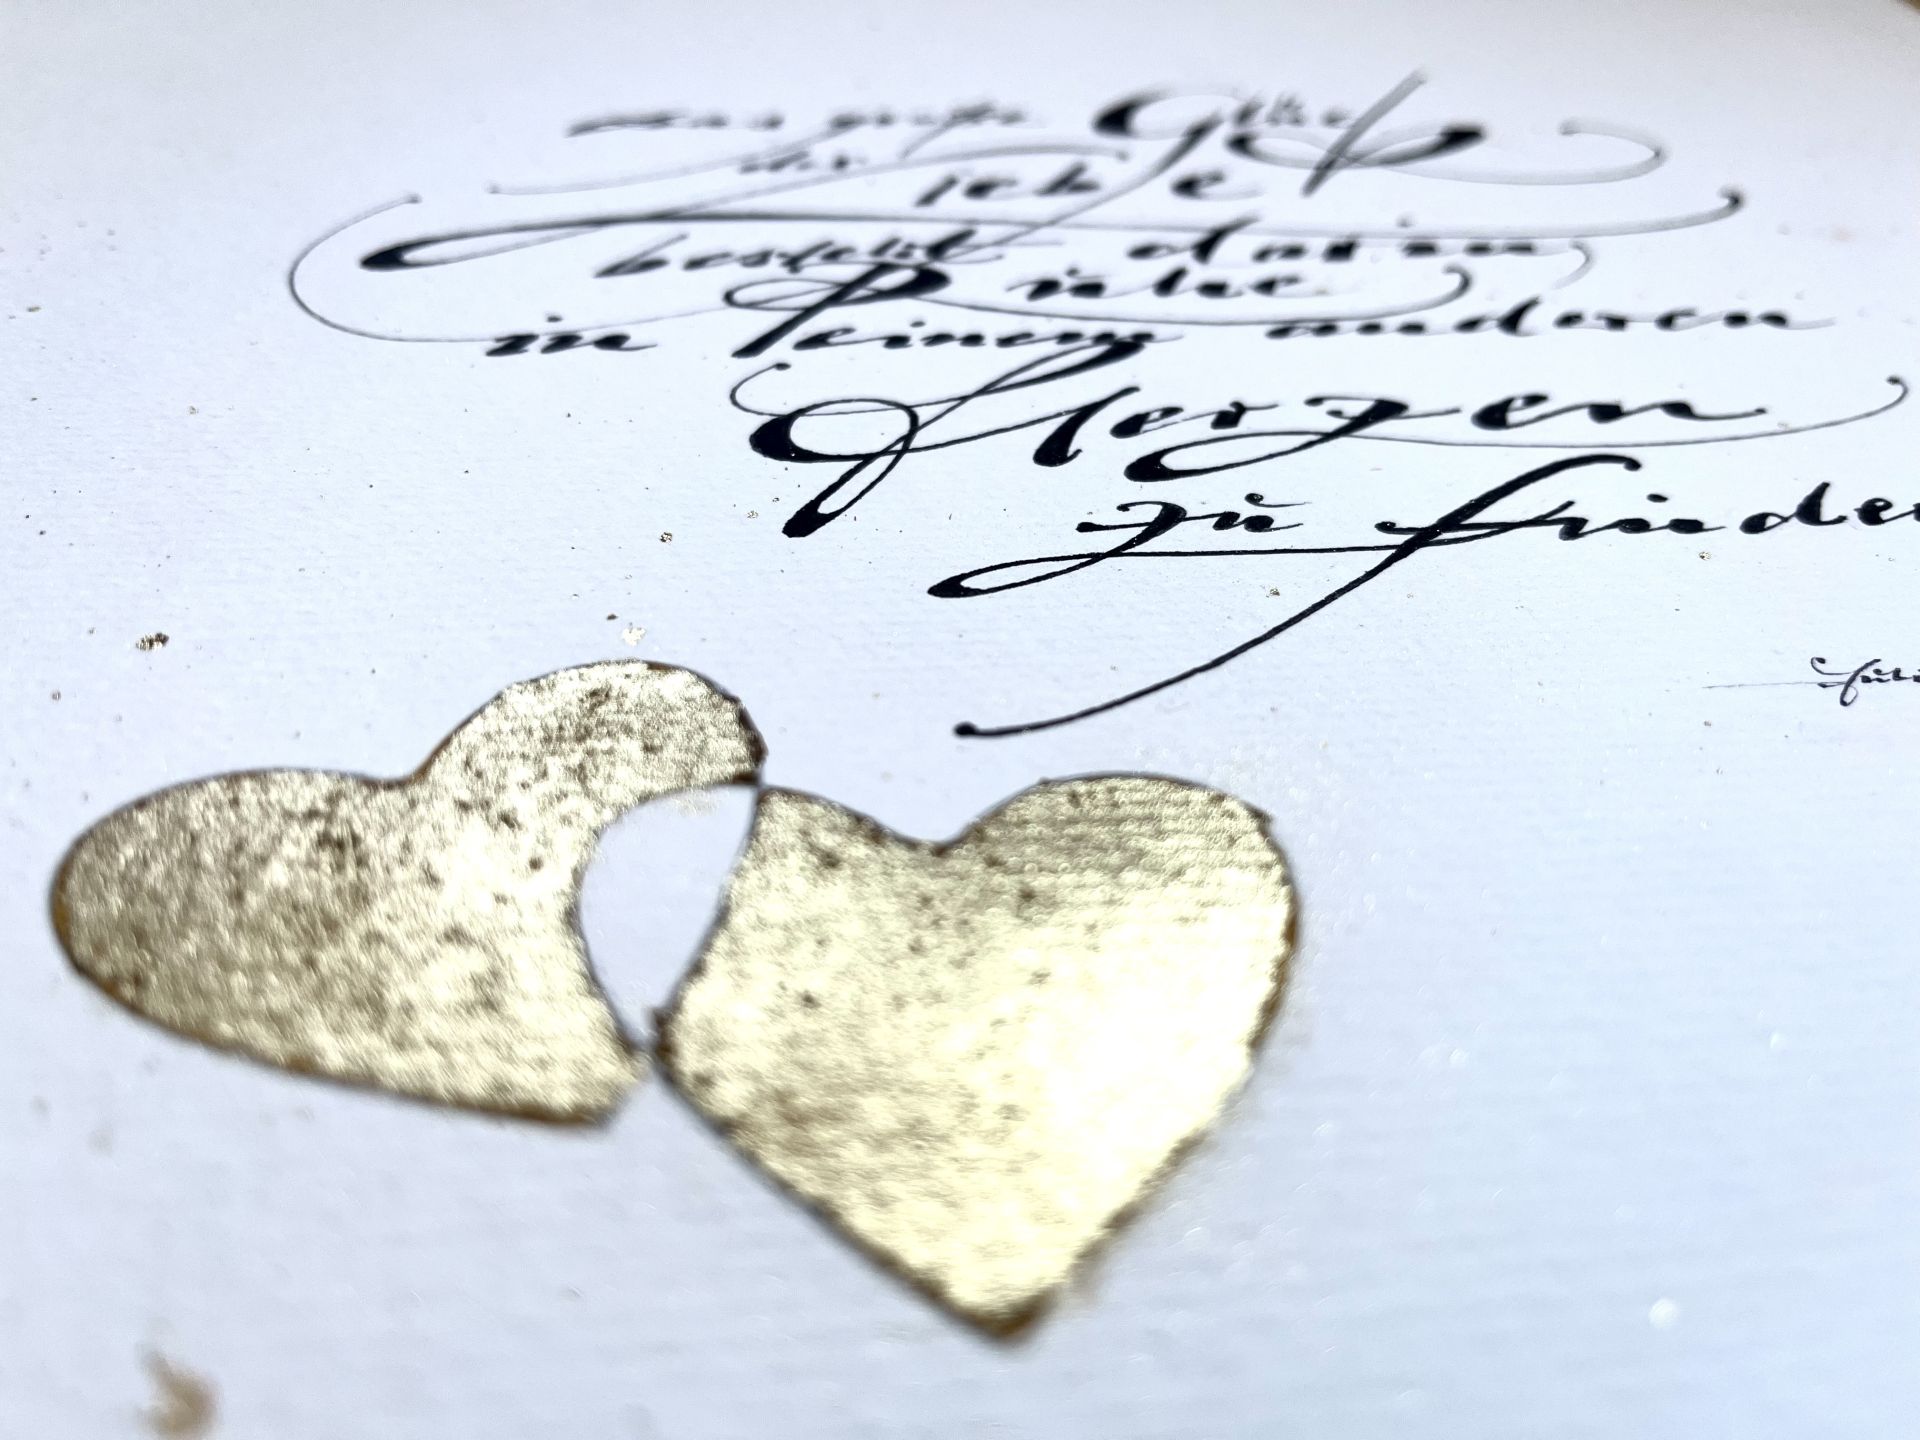 Das große Glück
der Liebe
besteht darin,
Ruhe
in einem anderen
Herzen
zu finden
Juli